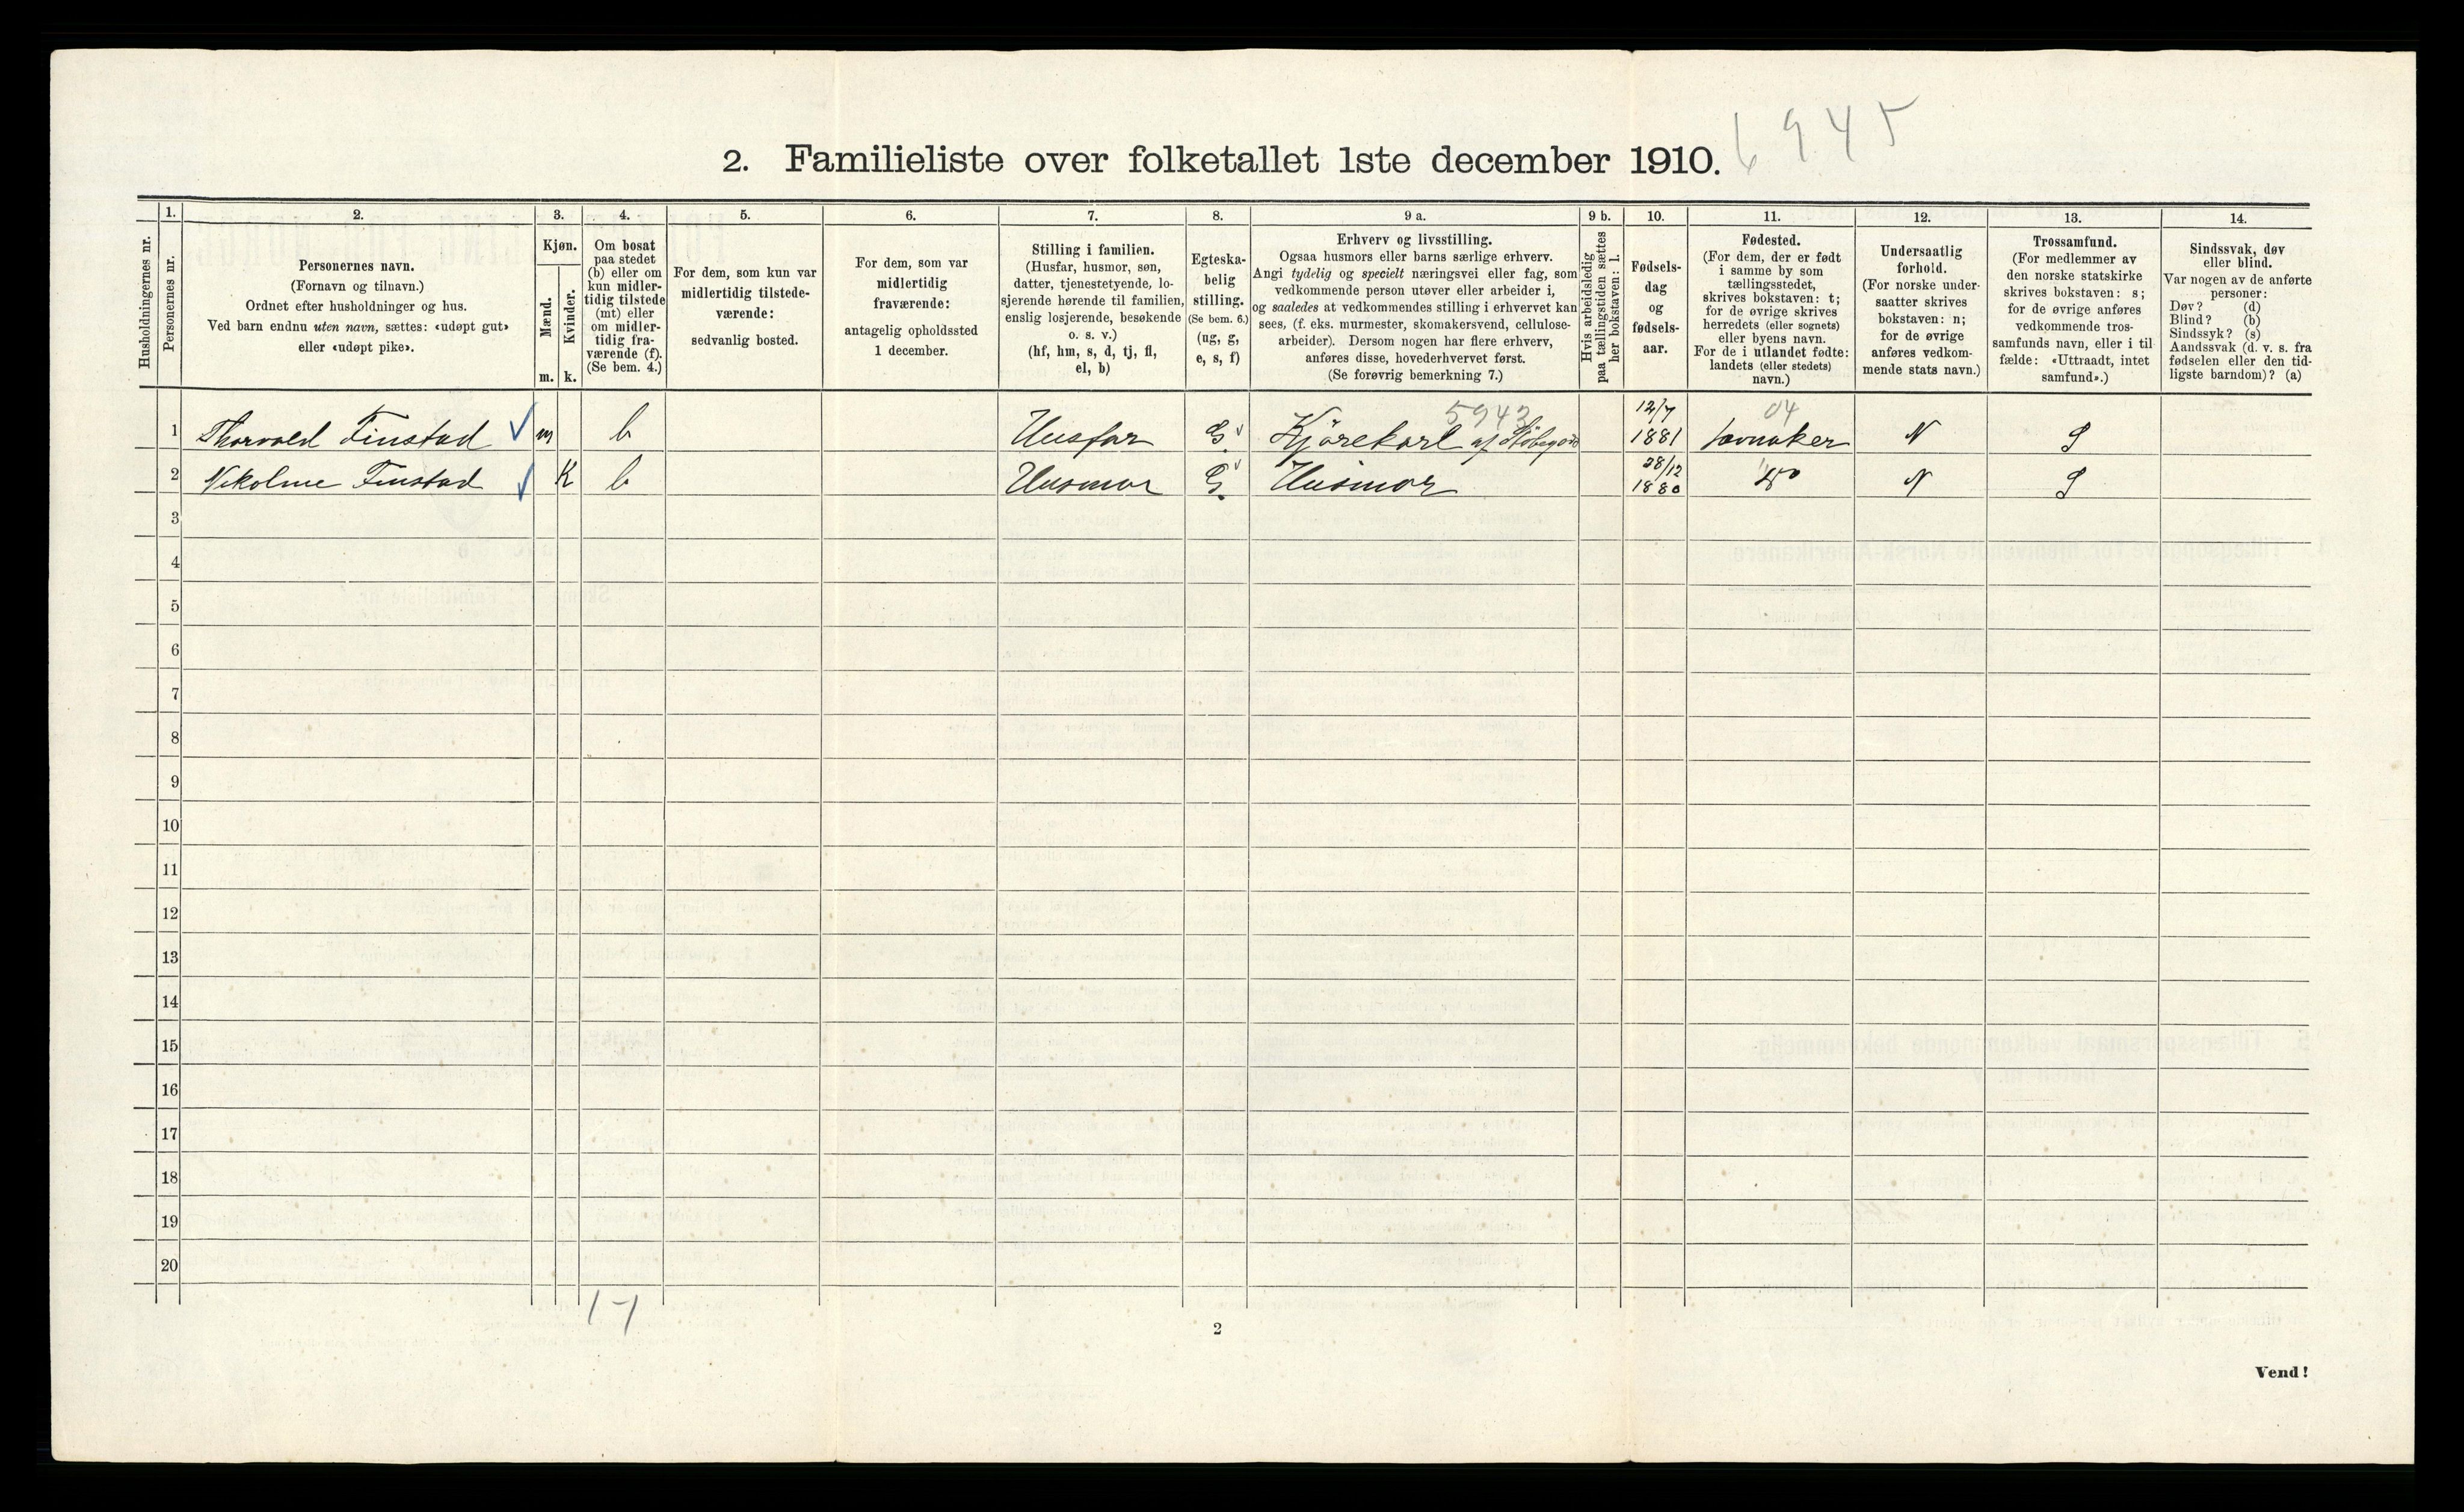 6945
2. Familieliste over folketallet 1ste december 1910.
Husholdningernes nr.
1.
Personernes nr.
2.
Personernes navn.
(Fornavn og tilnavn.)
Ordnet efter husholdninger og hus.
Ved barn endnu uten navn, sættes: «udøpt gut»
eller «udøpt pike».
3.
Kjøn.
Mænd.
Kvinder.
m. k.
4.
Om bosat
paa stedet
(b) eller om
kun midler-
tidig tilstede
(mt) eller
om midler-
tidig fra-
værende (f).
(Se bem. 4.)
5.
For dem, som kun var
midlertidig tilstede-
værende:
sedvanlig bosted.
6.
For dem, som var
midlertidig
fraværende:
antagelig opholdssted
1 december.
7.
Stilling i familien.
(Husfar, husmor, søn,
datter, tjenestetyende, lo-
sjerende hørende til familien,
enslig losjerende, besøkende
o. s. v.)
(hf, hm, s, d, tj, fl,
el, b)
8.
Egteska-
belig
stilling.
(Se bem. 6.)
(ug, g,
e, s, f)
9 a.
Erhverv og livsstilling.
Ogsaa husmors eller barns særlige erhverv.
Angi tydelig og specielt næringsvei eller fag, som
vedkommende person utøver eller arbeider i,
og saaledes at vedkommendes stilling i erhvervet kan
sees, (f. eks. murmester, skomakersvend, cellulose-
arbeider). Dersom nogen har flere erhverv,
anføres disse, hovederhvervet først.
(Se forøvrig bemerkning 7.)
9 b.
Hvis arbeidsledig
paa tællingstiden sættes
her bokstaven: l.
10.
Fødsels-
dag
og
fødsels-
aar.
11.
Fødested.
(For dem, der er født
i samme by som
tællingsstedet,
skrives bokstaven: t;
for de øvrige skrives
herredets (eller sognets)
eller byens navn.
For de i utlandet fødte:
landets (eller stedets)
navn.)
12.
Undersaatlig
forhold.
(For norske under-
saatter skrives
bokstaven: n;
for de øvrige
anføres vedkom-
mende stats navn.)
13.
Trossamfund.
(For medlemmer av
den norske statskirke
skrives bokstaven: s;
for de øvrige anføres
vedkommende tros-
samfunds navn, eller i til-
fælde: «Uttraadt, intet
samfund».)
14.
Sindssvak, døv
eller blind.
Var nogen av de anførte
personer:
Døv? (d)
Blind? (b)
Sindssyk? (s)
Aandssvak (d. v. s. fra
fødselen eller den tid-
ligste barndom)? (a)
5943 12/7 04
1 Thorvald Finstad m b Husfar G Kjørekarl af 1881 Jevnaker N S
28/12
2 Nikoline Finstad K b Husmor G Husmor 1880 do N S
3
4
5
6
7
8
9
10
11
12
13
14
15
16
17
18
19
20
1-1
2
Vend!